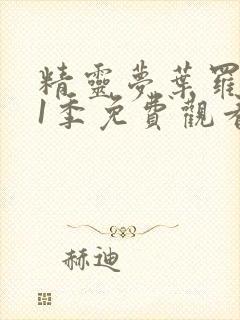 精靈夢葉羅
1季免費觀看
赫迪